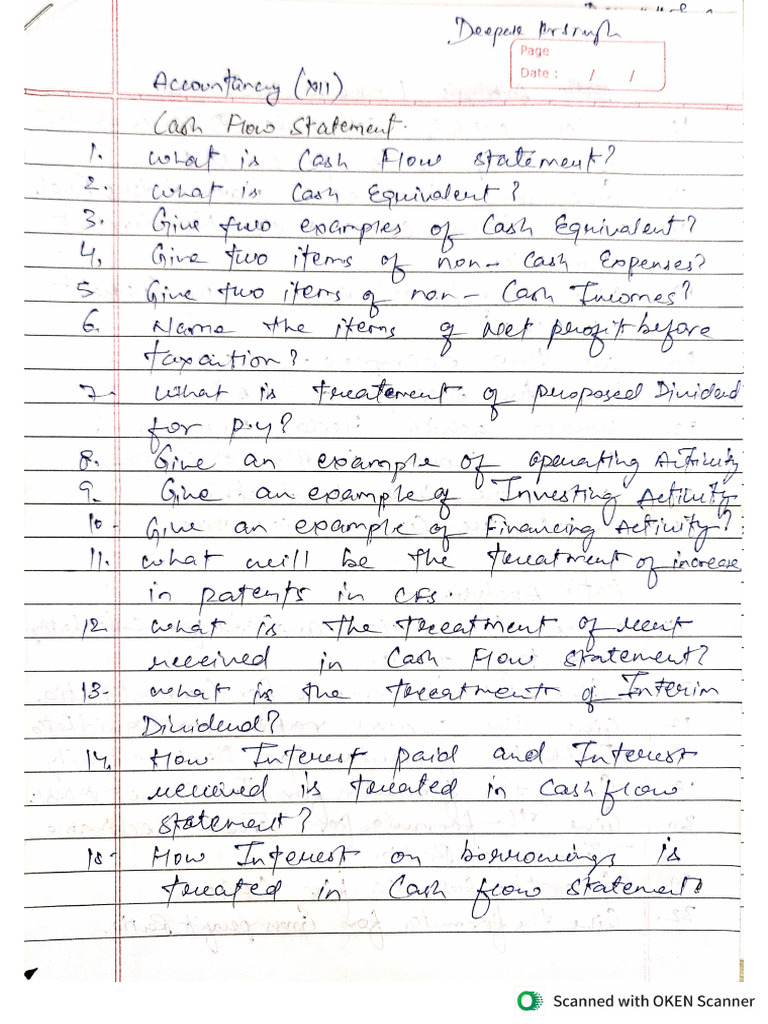 Page
Date : / /
Accountancy (XII)
Cash Flow Statement.
1. What is Cash Flow Statement?
2. What is Cash Equivalent?
3. Give two examples of Cash Equivalent?
4. Give two items of non-Cash Expenses?
5 Give two items of non-Cash Incomes?
6. Name the items of Net profit before
taxation?
7. What is treatement of proposed Dividend
for P.Y?
8. Give an example of Operating Activity
9. Give an example of Investing Activity
10. Give an example of Financing Activity?
11. What will be the treatment of increase
in patents in CFS.
12. What is the treatment of rent
received in Cash Flow Statement?
13- What is the treatment of Interim
Dividend?
14. How Interest paid and Interest
received is treated in Cash flow
Statement?
15- How Interest on borrowings is
treated in Cash flow Statement?
Scanned with OKEN Scanner